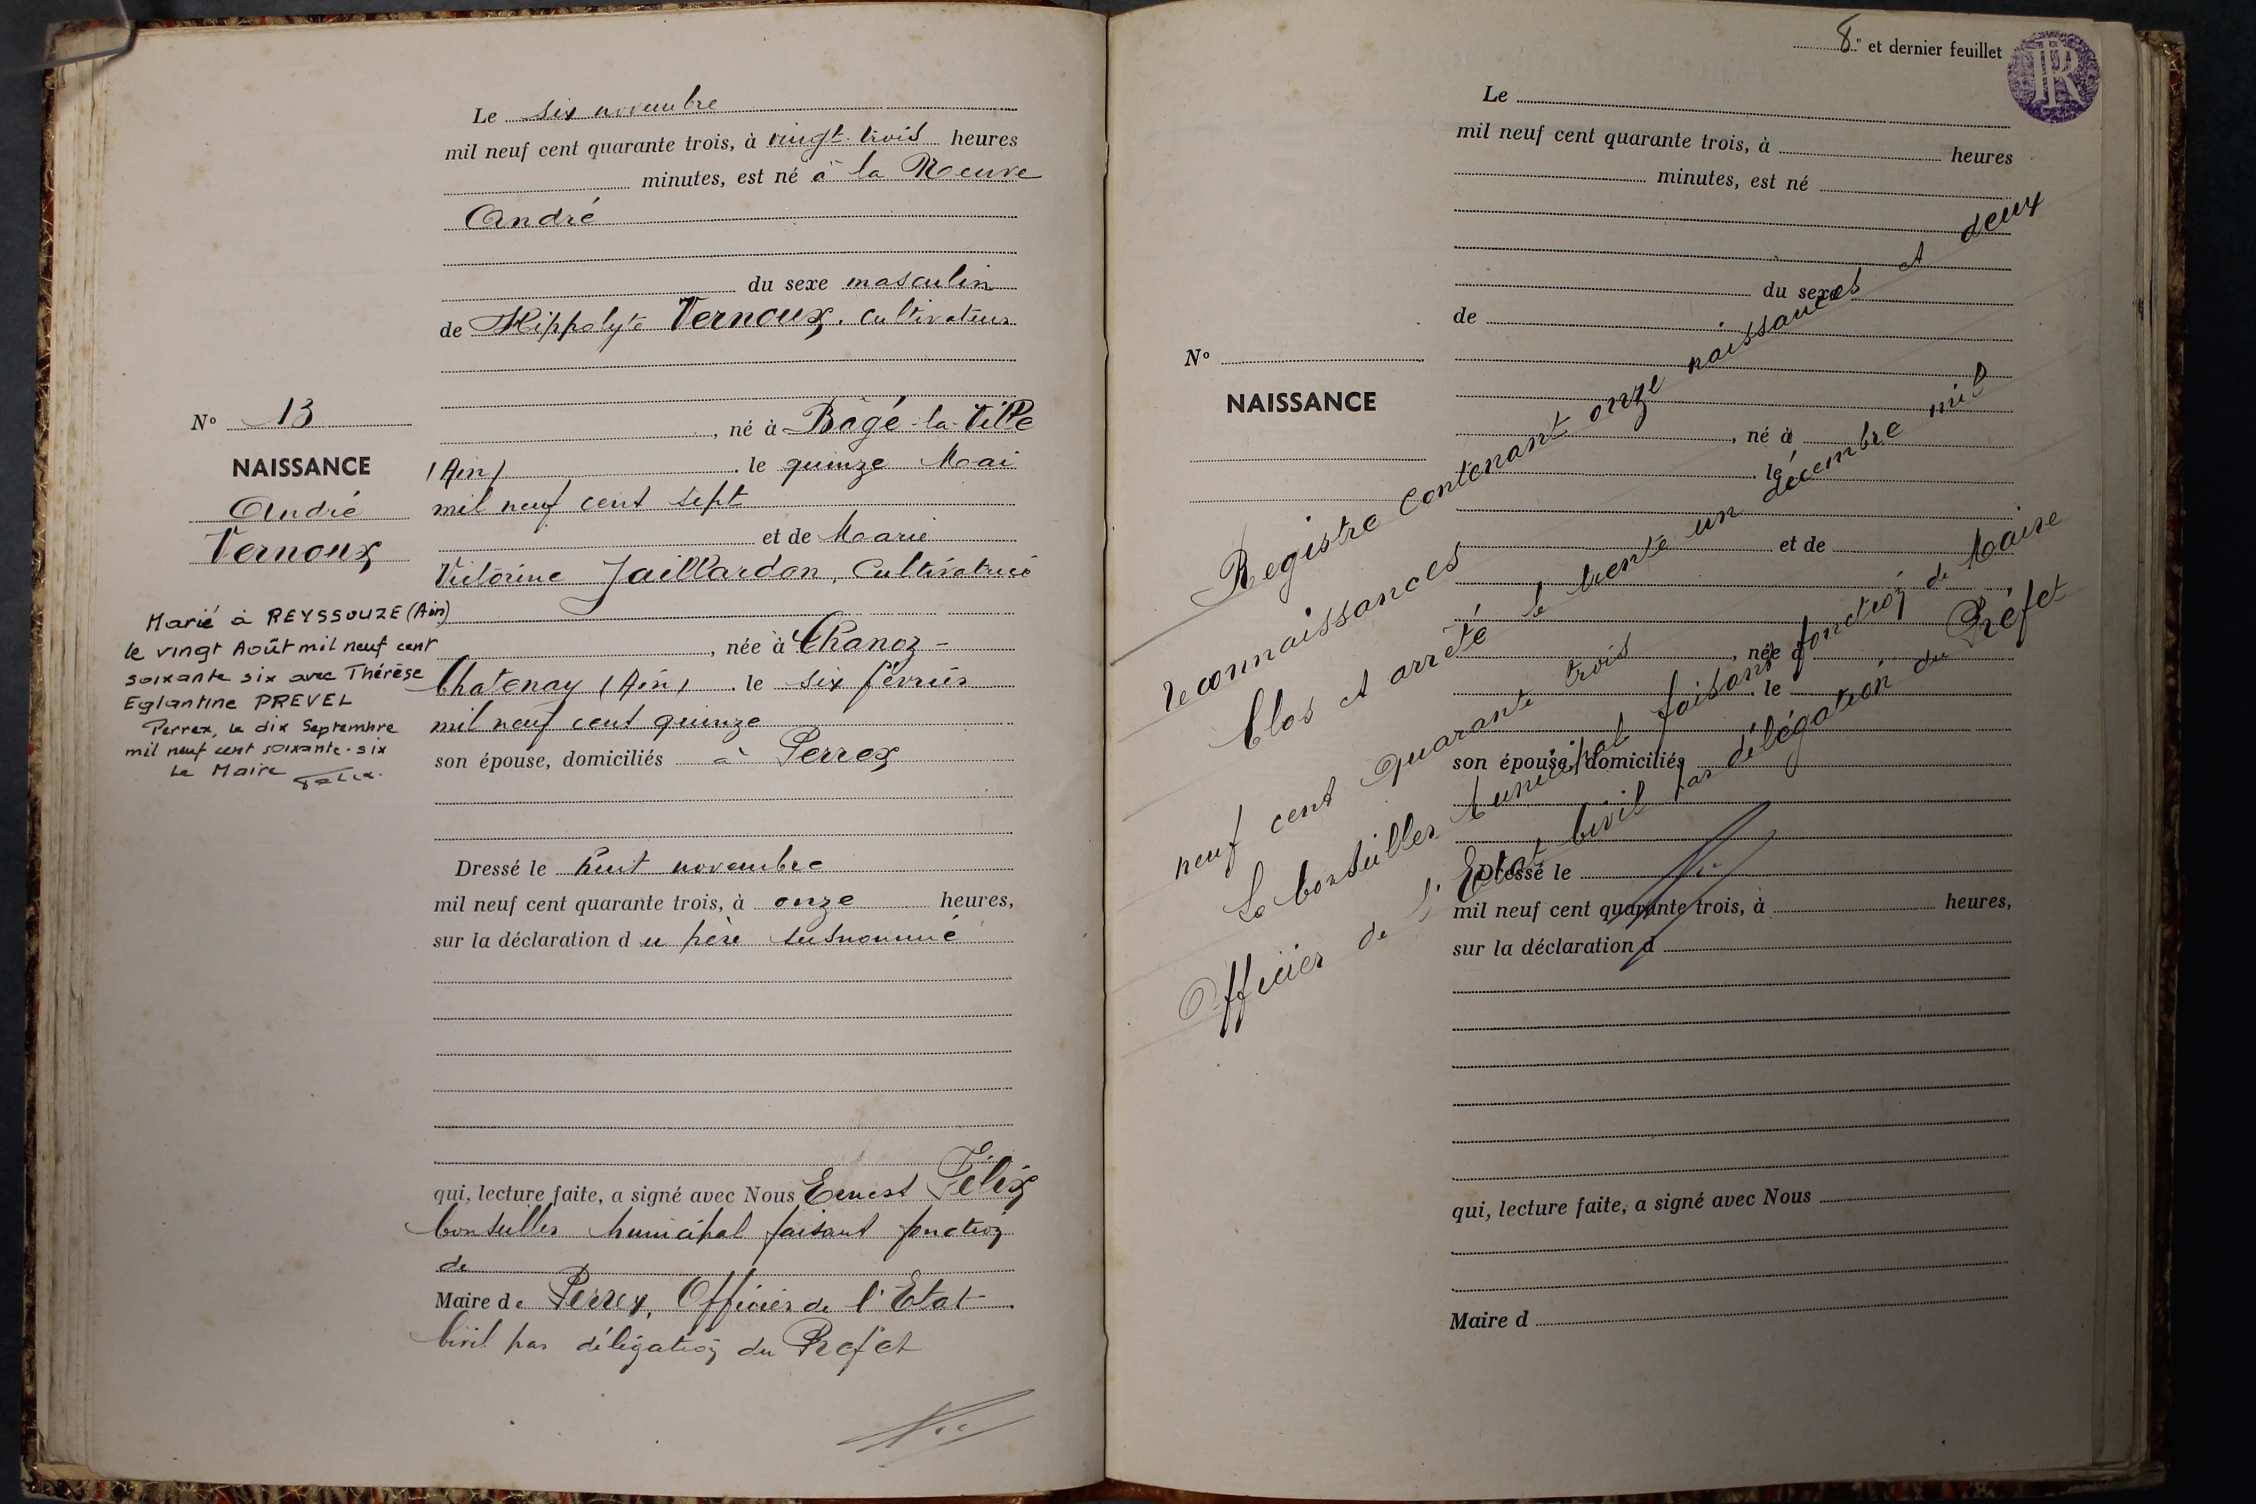 Le six novembre
mil neuf cent quarante trois, à vingt trois heures
minutes, est né à la Meuve
André
du sexe masculin
de Hippolyte Vernoux. Cultivateur
N° 13
, né à Bâgé-la-Ville
NAISSANCE
(Ain) . le quinze Mai
André
mil neuf cent sept
Vernoux
et de Marie
Victorine Jaillardon, Cultivatrice
Marié à REYSSOUZE (Ain)
le vingt Août mil neuf cent
soixante six avec Thérèse
Eglantine PREVEL
Perrex, le dix Septembre
mil neuf cent soixante-six
Le Maire
, née à Chanoz-
Chatenay (Ain) . le six février
mil neuf cent quinze
son épouse, domiciliés à Perrex
Dressé le huit novembre
mil neuf cent quarante trois, à onze heures,
sur la déclaration du père susnommé
qui, lecture faite, a signé avec Nous Ernest Félix
Conseiller municipal faisant fonction
de
Maire de Perrex, Officier de l'Etat
Civil par délégation du Préfet
8e et dernier feuillet
RF
Le
mil neuf cent quarante trois, à heures
minutes, est né
du sexe
de
N°
NAISSANCE
, né à
. le
et de
, née à
. le
son épouse, domiciliés
Dressé le
mil neuf cent quarante trois, à heures,
sur la déclaration d
qui, lecture faite, a signé avec Nous
Maire d
Registre contenant onze naissances et deux
reconnaissances
Clos et arrêté le trente un décembre mil
neuf cent quarante trois
Le Conseiller Municipal faisant fonction de Maire
Officier de l'Etat Civil par délégation du Préfet